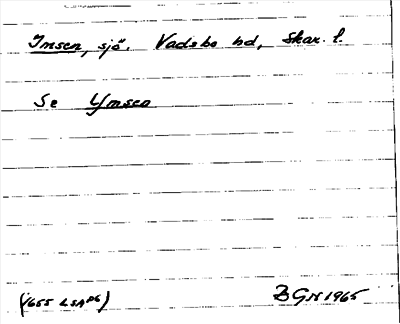 Imsen, sjö. Vadsbo hd, Skar. l.
Se Ymsen
(1655 LSA D6) BGN 1965